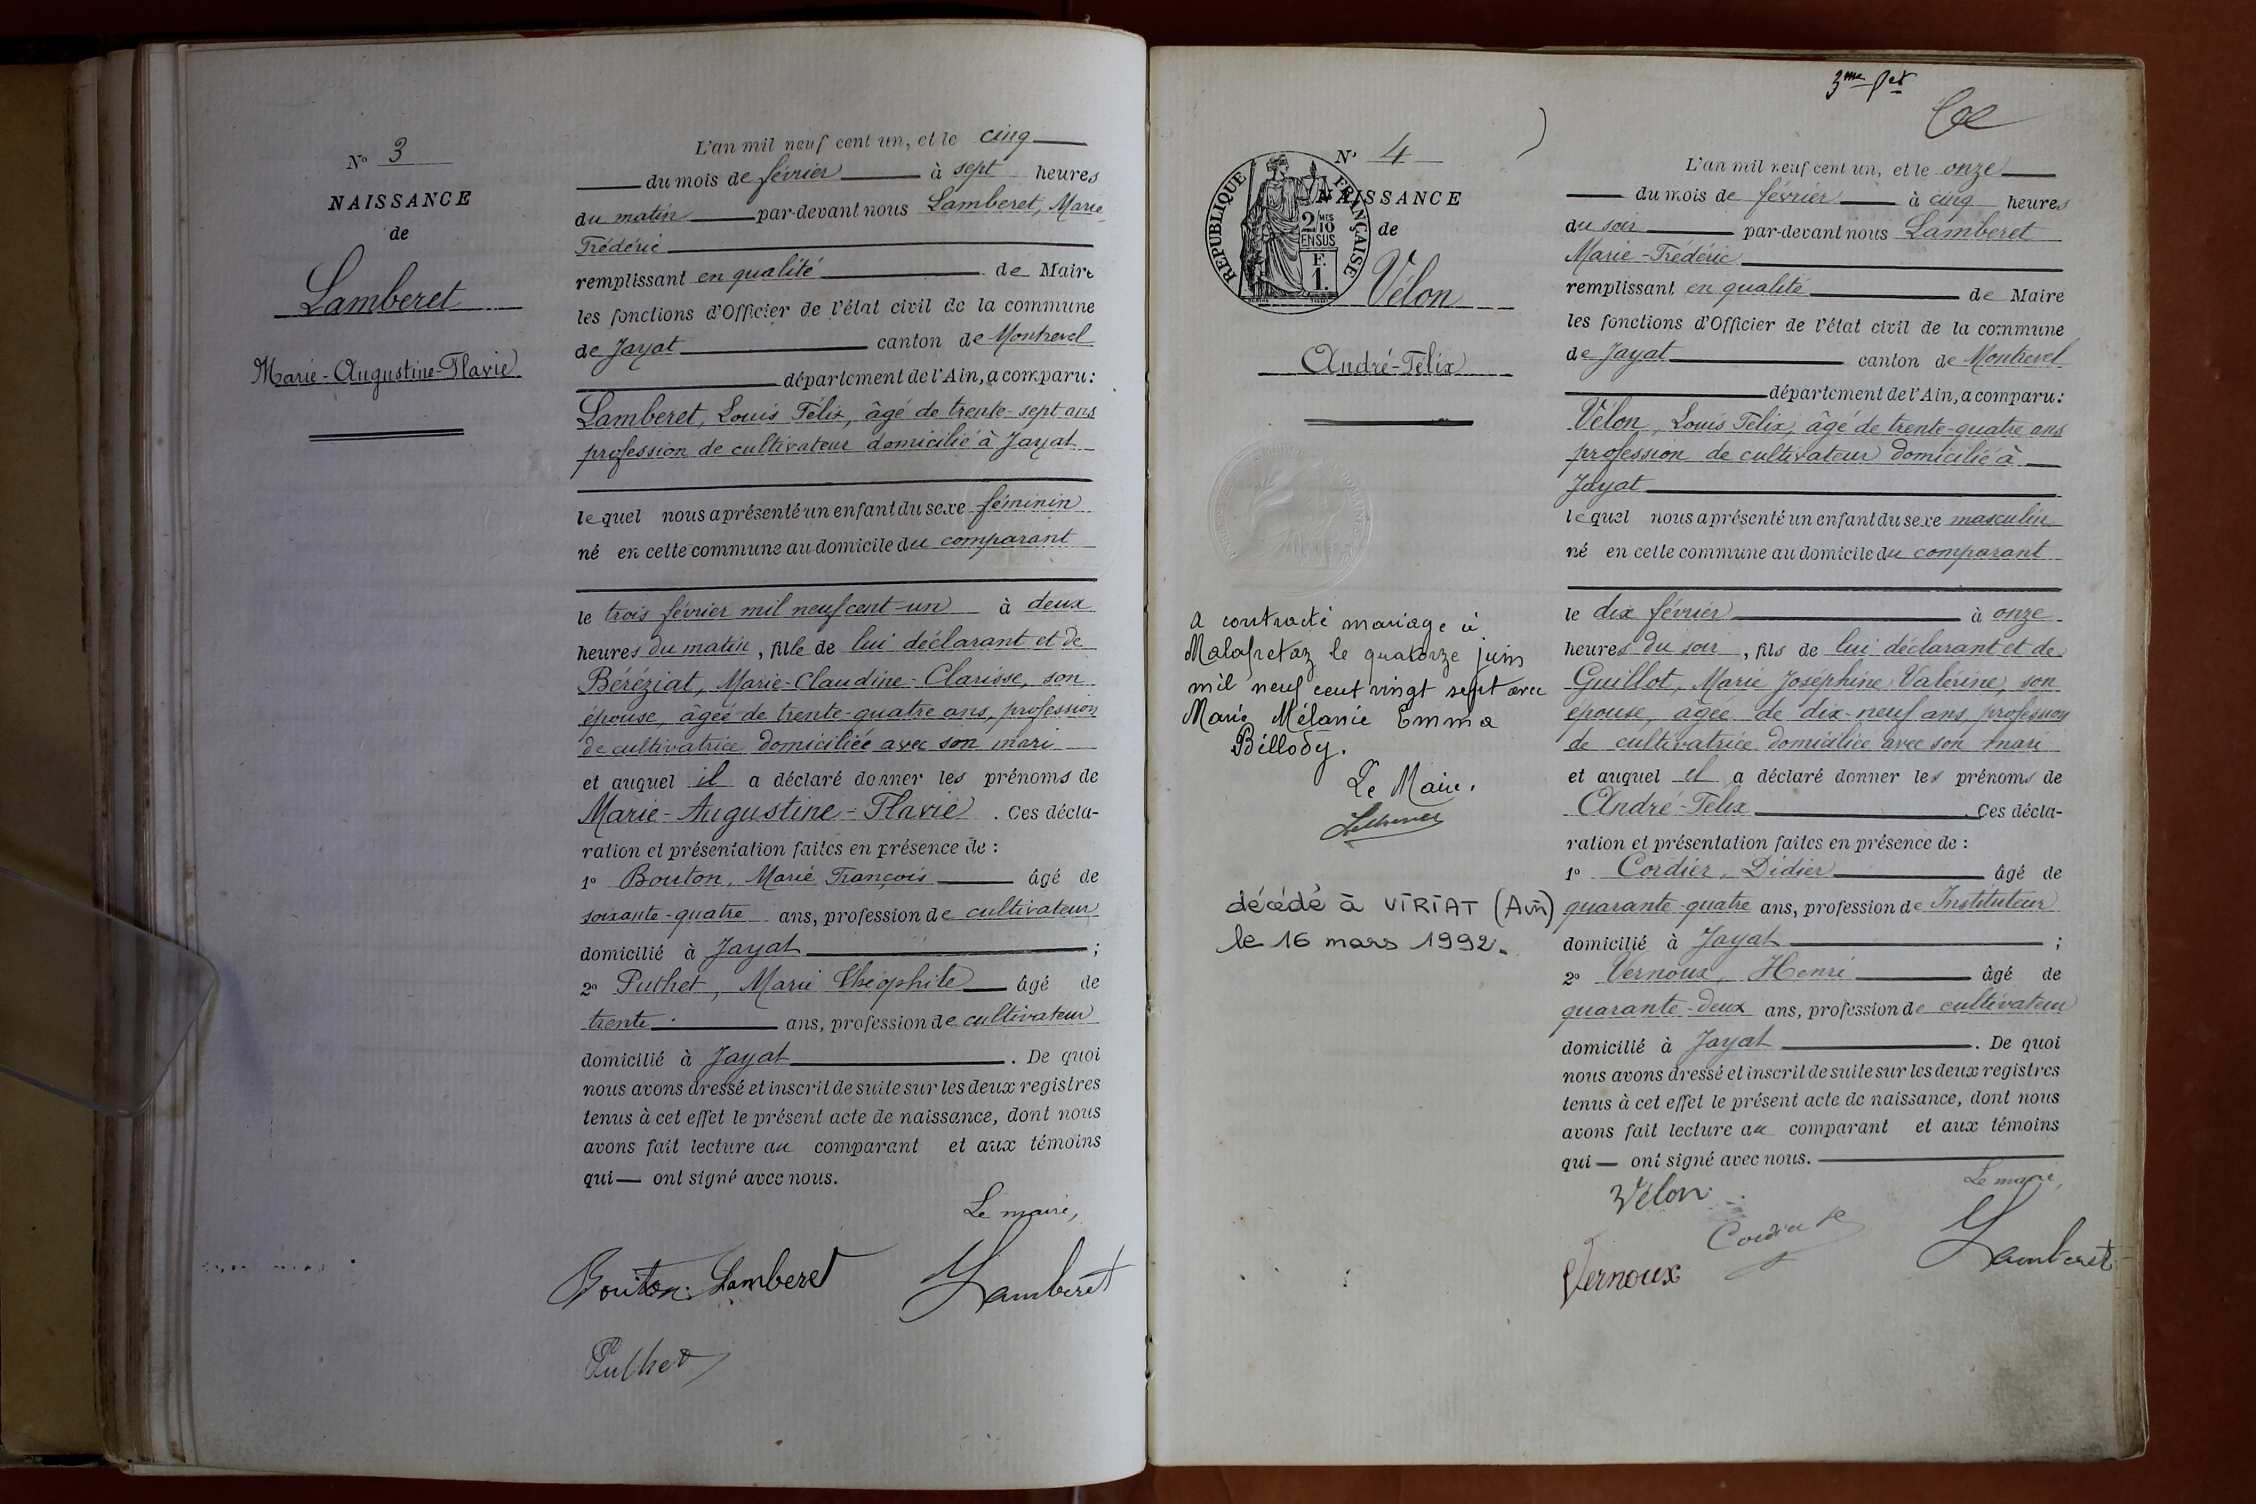 N° 3
NAISSANCE
de
Lamberet
Marie-Augustine-Flavie
L'an mil neuf cent un, et le cinq
du mois de février à sept heures
du matin par-devant nous Lamberet, Marie
Frédéric
remplissant en qualité de Maire
les fonctions d'Officier de l'état civil de la commune
de Jayat canton de Montrevel
département de l'Ain, a comparu :
Lamberet, Louis Félix, âgé de trente-sept ans
profession de cultivateur domicilié à Jayat
lequel nous a présenté un enfant du sexe féminin
né en cette commune au domicile du comparant
le trois février mil neuf cent-un à deux
heures du matin, fille de lui déclarant et de
Béréziat, Marie-Claudine-Clarisse, son
épouse, âgée de trente-quatre ans, profession
de cultivatrice domiciliée avec son mari
et auquel il a déclaré donner les prénoms de
Marie-Augustine-Flavie. Ces décla-
ration et présentation faites en présence de :
1° Bouton, Marie François âgé de
soixante-quatre ans, profession de cultivateur
domicilié à Jayat ;
2° Puthet, Marie Théophile âgé de
trente ans, profession de cultivateur
domicilié à Jayat. De quoi
nous avons dressé et inscrit de suite sur les deux registres
tenus à cet effet le présent acte de naissance, dont nous
avons fait lecture au comparant et aux témoins
qui ont signé avec nous.
Le maire,
Bouton Lamberet Lamberet
Puthet
3me
N° 4
NAISSANCE
de
RÉPUBLIQUE FRANÇAISE
2/10 MES
EN SUS
F.
1.
Vélon
André-Félix
a contracté mariage à
Malafretaz le quatorze juin
mil neuf cent vingt sept avec
Marie Mélanie Emma
Billody.
Le Maire.
décédé à VIRIAT (Ain)
le 16 mars 1992.
L'an mil neuf cent un, et le onze
du mois de février à cinq heures
du soir par-devant nous Lamberet
Marie-Frédéric
remplissant en qualité de Maire
les fonctions d'Officier de l'état civil de la commune
de Jayat canton de Montrevel
département de l'Ain, a comparu :
Vélon, Louis Félix, âgé de trente-quatre ans
profession de cultivateur domicilié à
Jayat
lequel nous a présenté un enfant du sexe masculin
né en cette commune au domicile du comparant
le dix février à onze
heures du soir, fils de lui déclarant et de
Guillot, Marie Joséphine Valérine, son
épouse, âgée de dix-neuf ans, profession
de cultivatrice domiciliée avec son mari
et auquel il a déclaré donner les prénoms de
André-Félix. Ces décla-
ration et présentation faites en présence de :
1° Cordier, Didier âgé de
quarante-quatre ans, profession de Instituteur
domicilié à Jayat ;
2° Vernoux, Henri âgé de
quarante-deux ans, profession de cultivateur
domicilié à Jayat. De quoi
nous avons dressé et inscrit de suite sur les deux registres
tenus à cet effet le présent acte de naissance, dont nous
avons fait lecture au comparant et aux témoins
qui ont signé avec nous.
Le maire,
Vélon
Vernoux Lamberet